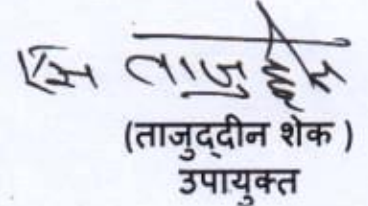 एस ताजुद्दीन
(ताजुद्दीन शेक )
उपायुक्त